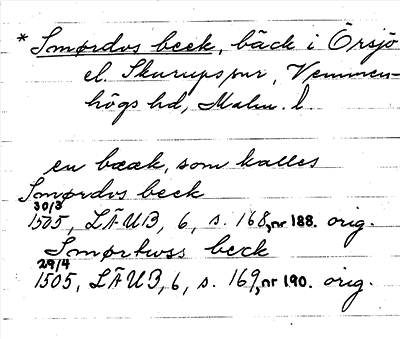 * Smørdvs beck, bäck i Örsjö
el. Skurups snr, Vemmen-
högs hd, Malm. l.
en bææk, som kalles
Smørdvs beck
30/3
1505, LÄUB, 6, s. 168, nr 188. orig.
Smørkwss beck
29/4
1505, LÄUB, 6, s. 169, nr 190. orig.